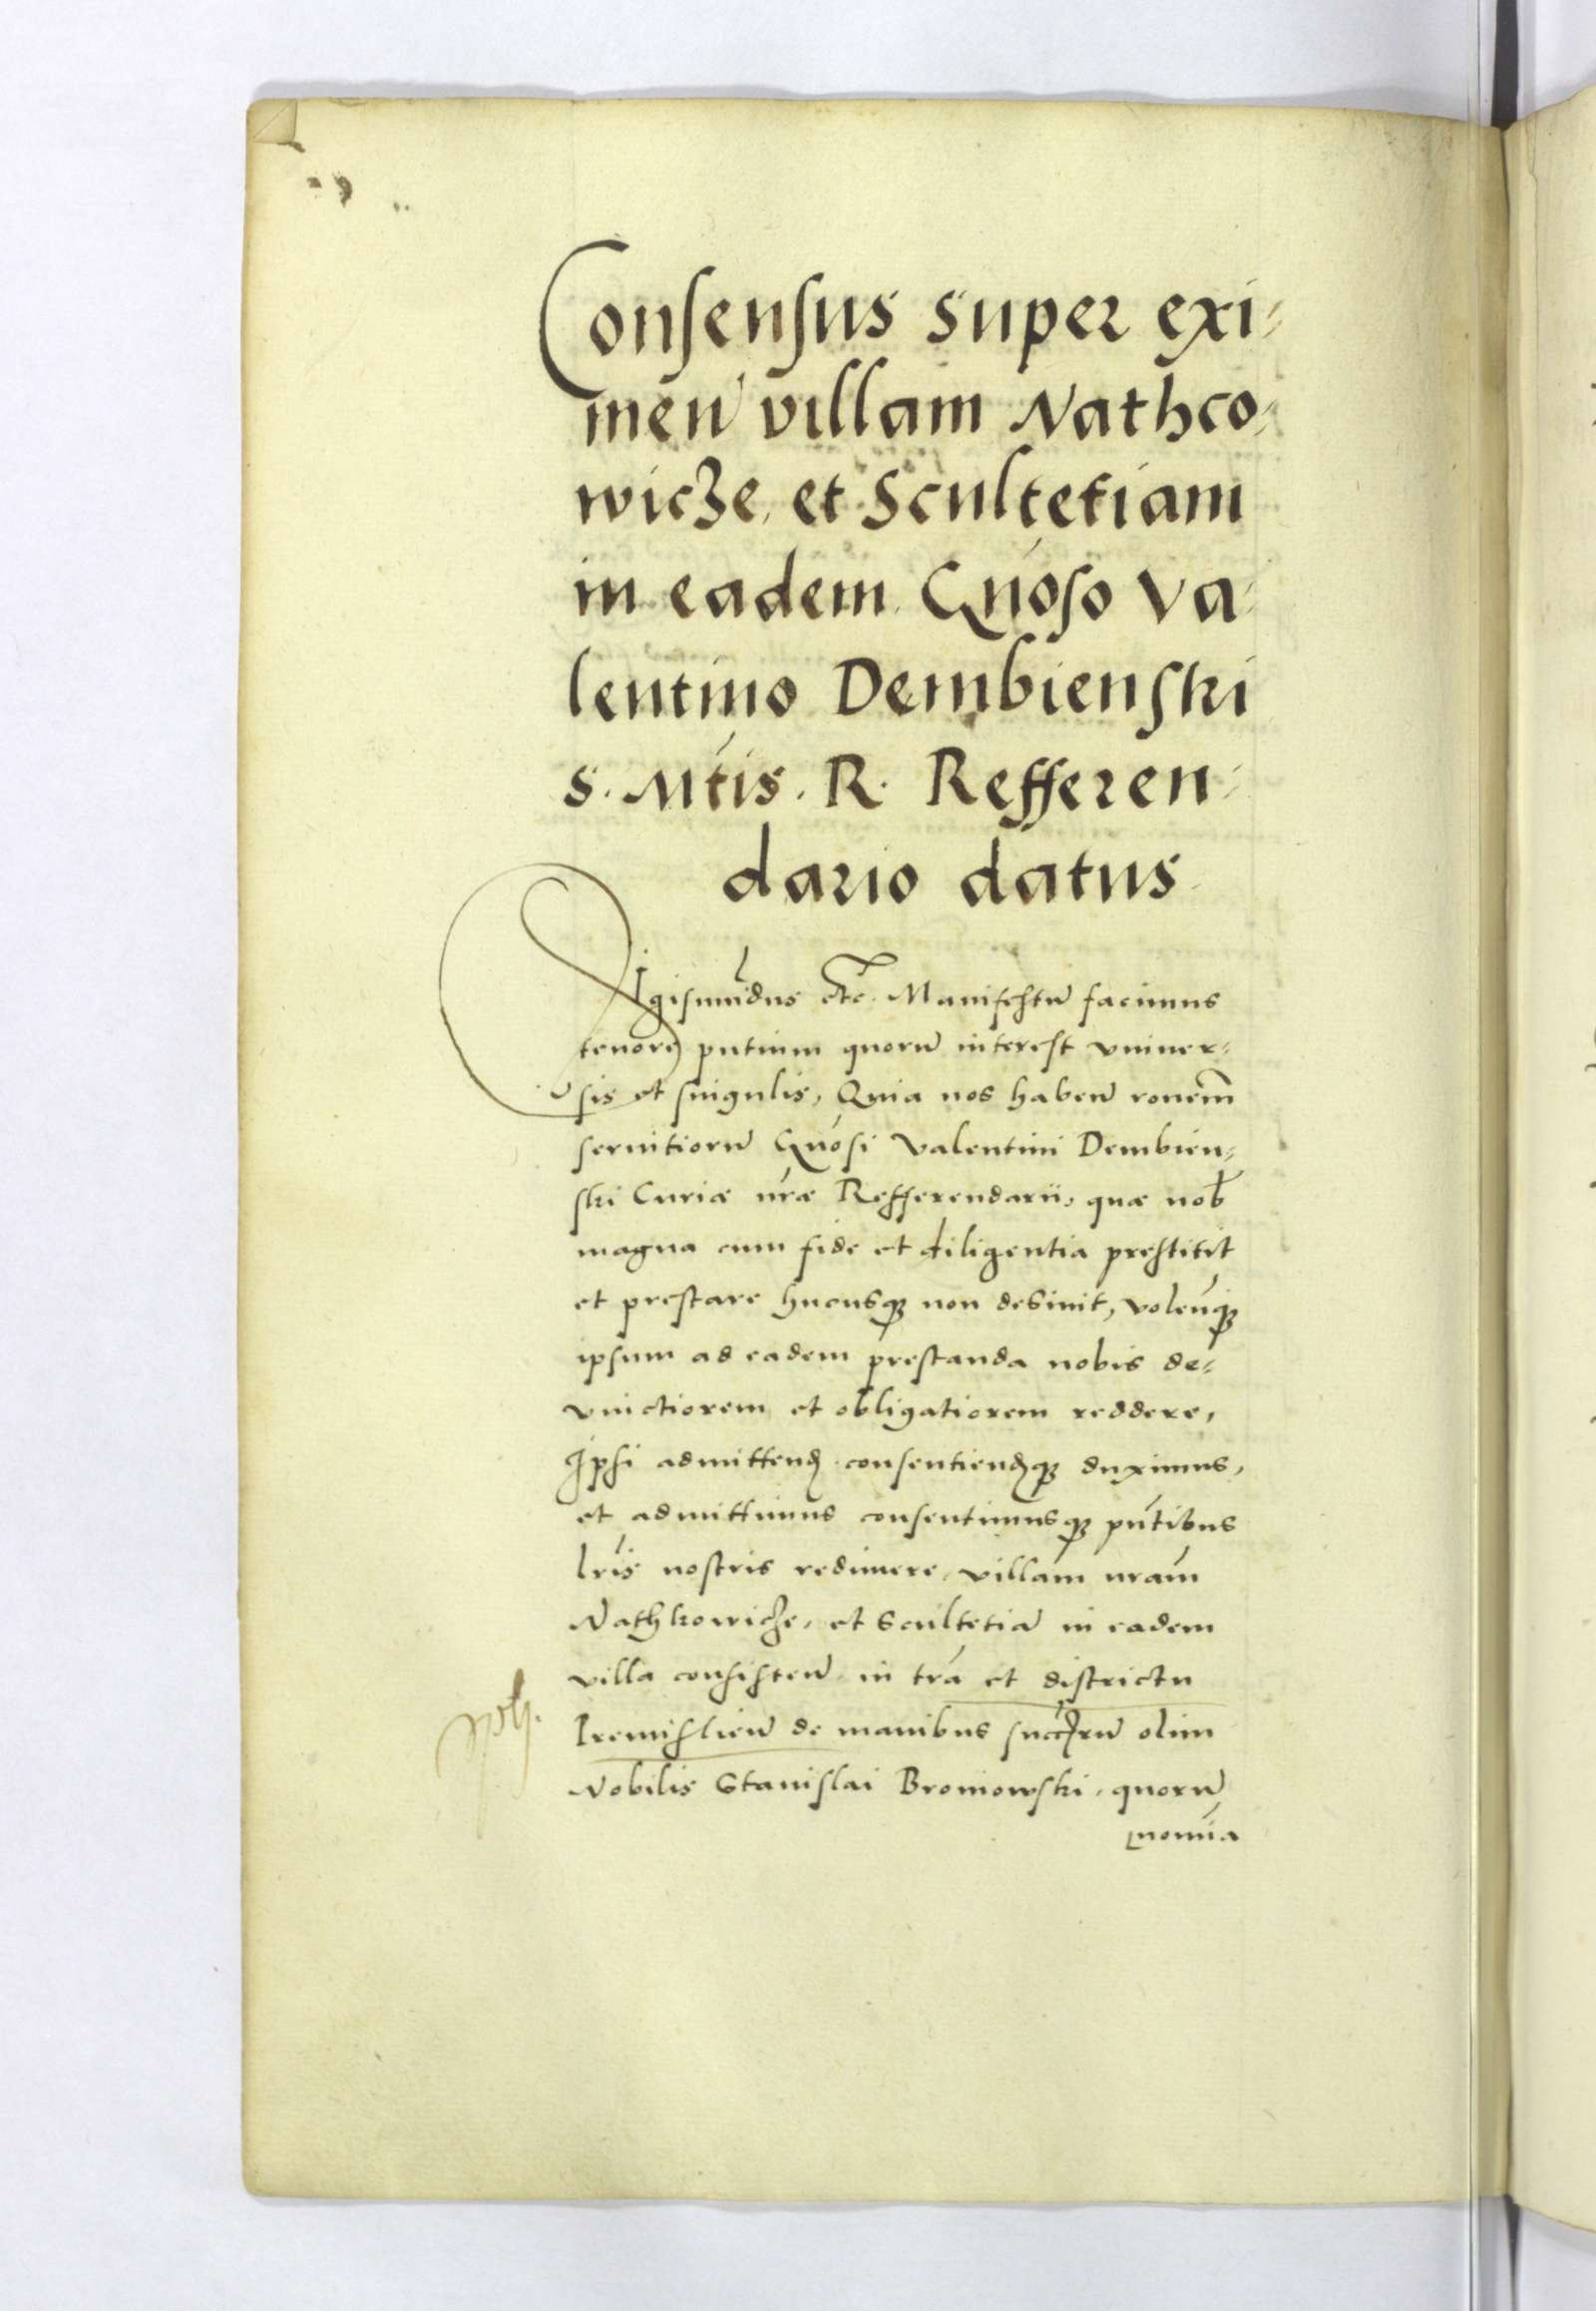 Consensus super exi-
men̄ villam Nathco-
wicze, et Scultetiam
in eadem G̃noso Va-
lentino Dembienski
S. Mt̃is. R. Refferen-
dario datus
Sigismũdus etc. Manifestũ facimus
tenore pñtium quorũ interest vniuer-
sis et singulis, Quia nos habeñ rõnem
seruitiorũ G̃nosi Valentini Dembien-
ski Curiæ nr̃æ Refferendarii, quæ nob̃
magna cum fide et diligentia prestitit
et prestare hucusq̃ non desinit, voleñq̃
ipsum ad eadem prestanda nobis de-
uinctiorem et obligatiorem reddere,
Ipsi admittend̃ consentiend̃q̃ duximus,
et admittimus consentimusq̃ pñtibus
lr̃is nostris redimere villam nr̃am
Nathkowicze, et Scultetiã in eadem
villa consisteñ in tr̃a et districtu
Premislieñ de manibus succ̃rũ olim
Nobilis Stanislai Broniowski, quorũ
nomĩa